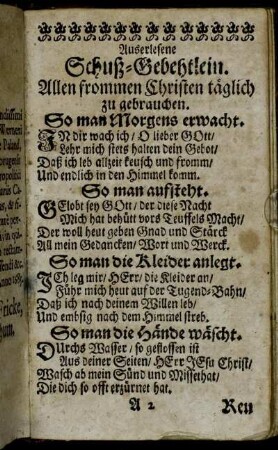 Auserlesene
Schuß-Gebehtlein.
Allen frommen Christen täglich
zu gebrauchen.
So man Morgens erwacht.
IN dir wach ich / O lieber GOtt /
Lehr mich stets halten dein Gebot /
Daß ich leb allzeit keusch und fromm /
Und endlich in den Himmel komm.
So man aufsteht.
GElobt sey GOtt / der diese Nacht
Mich hat behüt vors Teuffels Macht /
Der woll heut geben Gnad und Stärck
All mein Gedancken / Wort und Werck.
So man die Kleider anlegt.
ICh leg mir / HErr / die Kleider an /
Führ mich heut auf der Tugend-Bahn /
Daß ich nach deinem Willen leb /
Und embsig nach dem Himmel streb.
So man die Hände wäscht.
DUrchs Wasser / so geflossen ist
Aus deiner Seiten / HErr JEsu Christ /
Wasch ab mein Sünd und Missethat /
Die dich so offt erzürnet hat.
A 2
Reu